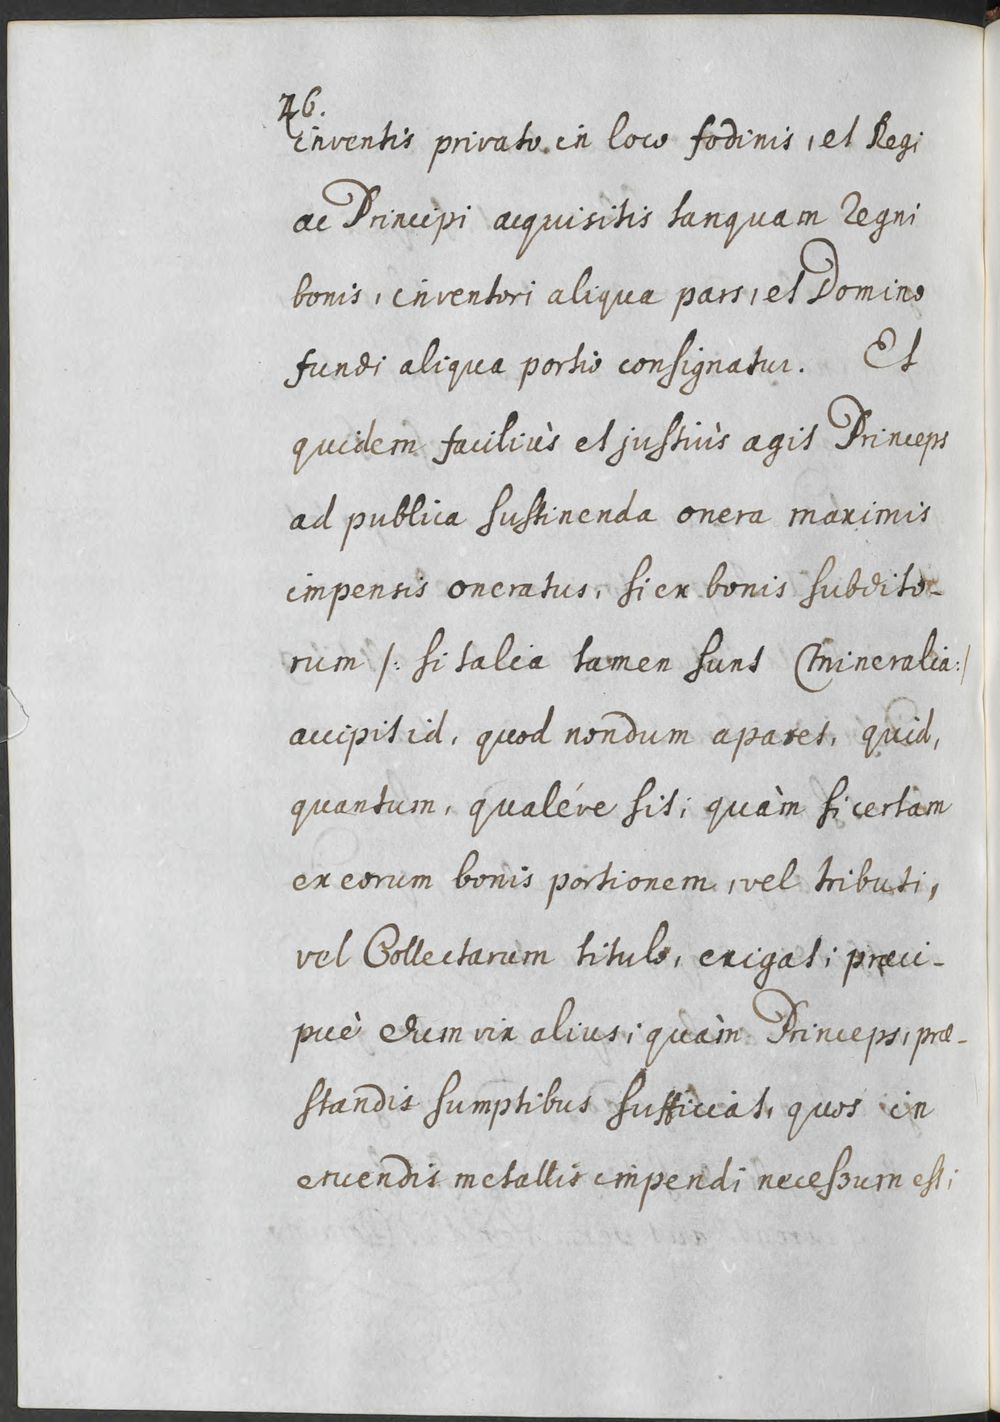 46.
inventis privato in loco fodinis, et Regi
ac Principi acquisitis tanquam Regni
bonis, inventori aliqua pars, et Domino
fundi aliqua portio consignatur. Et
quidem faciliùs et justiùs agit Princeps
ad publica sustinenda onera maximis
impensis oneratus, si ex bonis subdito-
rum /: si talia tamen sunt Mineralia :/
accipit id, quod nondum aparet, quid,
quantum, qualéve sit; quàm si certam
ex eorum bonis portionem, vel tributi,
vel Collectarum titulo, exigat; præci-
puè cum vix alius; quàm Princeps, præ-
standis sumptibus sufficiat, quos in
eruendis metallis impendi necessum est;